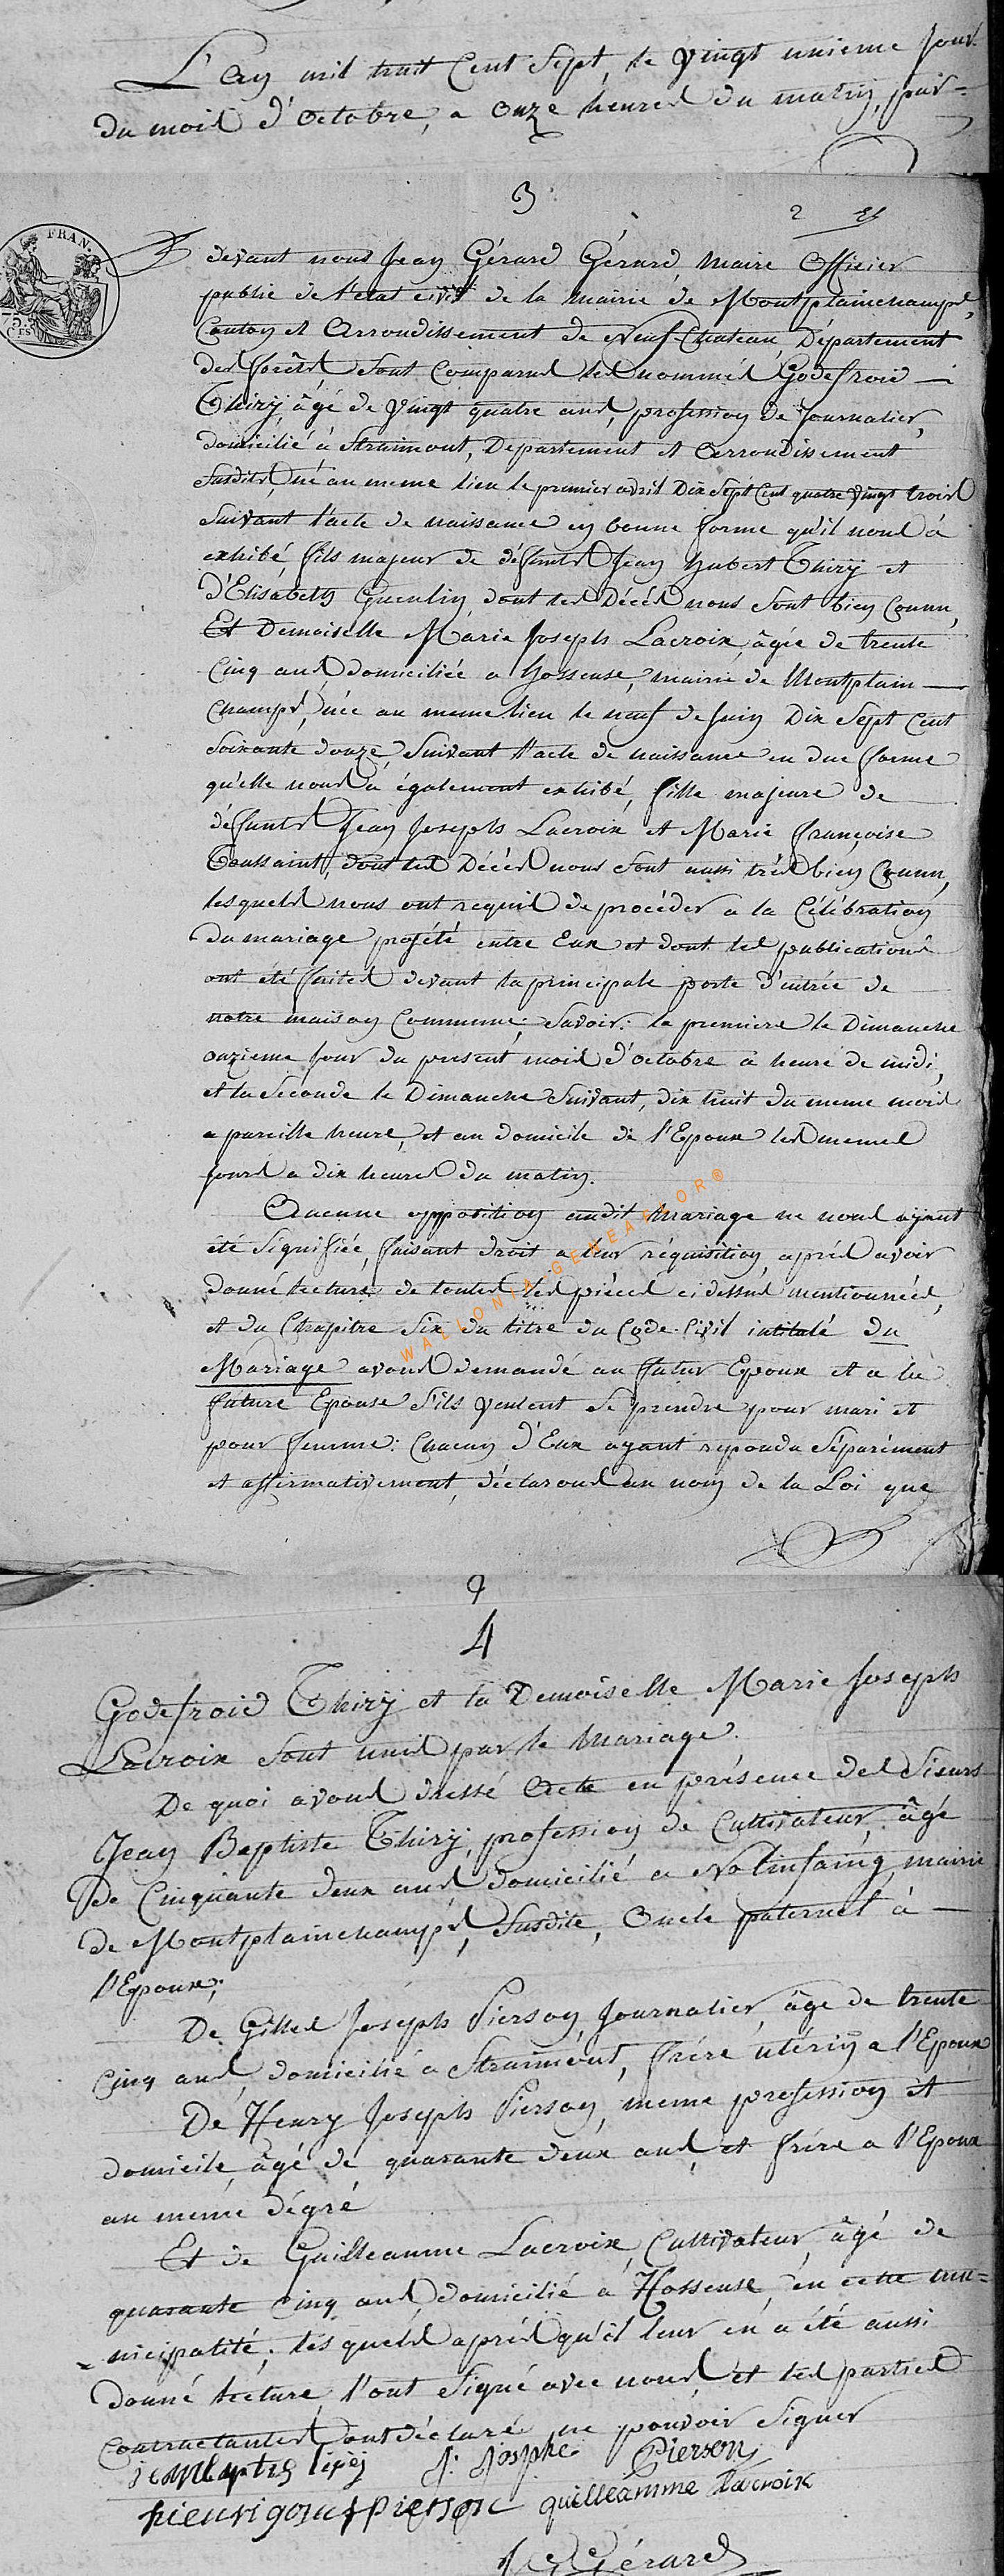 L'an mil huit Cent Sept, le vingt unieme jour
du mois d'octobre, a onze heures du matin, par=
3
2
FRAN.
75
CTS
devant nous Jean Gérard Gérard, Maire Officier
public de l'état civil de la Mairie de Montplainchamps,
Canton et Arrondissement de Neuf-Chateau, Département
des forêts Sont Comparus les nommés Godefroid —
Thiry, âgé de vingt quatre ans, profession de journalier,
domicilié à Straimont, Departement et Arrondissement
Susdits, né au meme lieu le premier avril Dix Sept Cent quatre vingt trois
Suivant l'acte de naissance en bonne forme qu'il nous à
exhibé, fils majeur de défunts Jean hubert Thiry et
d'Elisabeth Guenlin, dont les Décés nous Sont bien Connu,
Et Demoiselle Marie Joseph Lacroix, âgée de trente
Cinq ans, domiciliée a hosseuse, mairie de Montplain —
Champs, née au meme lieu le neuf de Juin Dix Sept Cent
Soixante douze, Suivant l'acte de naissance en due forme
qu'elle nous a également exhibé, fille majeure de
défunts Jean Joseph Lacroix et Marie françoise
Toussaint, dont les Décés nous Sont aussi trés bien Connu,
lesquels nous ont requis de procéder a la Célébration
du mariage projété entre Eux et dont les publications
ont été faites devant la principale porte d'entrée de
notre maison Commune, Savoir: la premiere le Dimanche
onzieme jour du present mois d'octobre a heure de midi,
et la Seconde le Dimanche Suivant, dix huit du meme mois
a pareille heure, et au domicile de l'Epoux les memes
jours a dix heures du matin.
Aucune opposition audit Mariage ne nous ayant
été Signifiée, faisant droit a leur réquisition, aprés avoir
donné lecture de toutes les piéces ci dessus mentionnées,
et du Chapitre Six du titre du Code Civil intitulé du
Mariage avons demandé au futur Epoux et a la
future Epouse S'ils veulent Se prendre pour mari et
pour femme: Chacun d'Eux ayant repondu Séparément
et affirmativement, déclarons au nom de la Loi que
WALLONIA-GENEALOR®
4
Godefroid Thiry et la Demoiselle Marie Joseph
Lacroix Sont unis par le Mariage.
De quoi avons dressé Acte en présence des Sieurs
Jean Baptiste Thiry, profession de Cultivateur, âgé
de Cinquante deux ans domicilié a Nolinfaing, mairie
de Montplainchamps, Susdite, Oncle paternel à —
l'Epoux;
De Gilles Joseph Pierson, Journalier, âgé de trente
Cinq ans, domicilié a Straimont, frére utérin a l'Epoux
De Henry Joseph Pierson, meme profession et
domicile, âgé de quarante deux ans, et frére a l'Epoux
au même dégré
Et de Guilleaume Lacroix, Cultivateur, âgé de
quarante Cinq ans domicilié à Hosseuse, en cette mu=
=nicipalité, lesquels aprés qu'il leur en a été aussi
donné lecture, l'ont Signé avec nous, et les parties
Contractantes ont déclaré ne pouvoir Signer
j: Josphe Pierson
guilleamme lacroix
Gérard